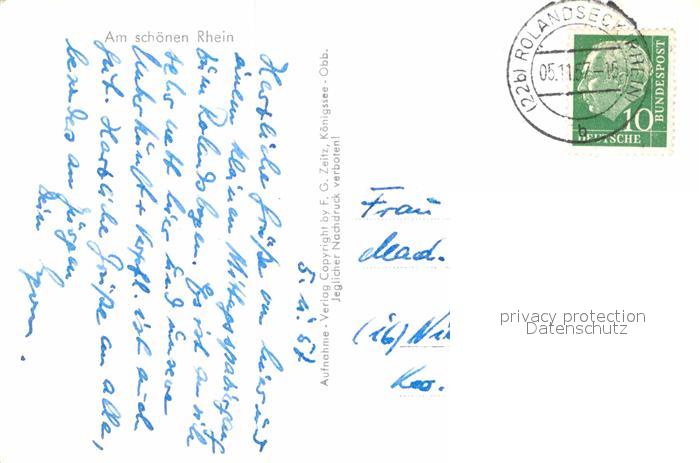 Am schönen Rhein
5.11.57
Herzliche Grüße von hier und
einem kleinen Mittagsspaziergang
zum Rolandsbogen. Es ist an sich
sehr nett hier und unsere
Unterkunft + Verpfl. ist auch
gut. Herzliche Grüße an alle,
besonders an Jürgen
Dein
Aufnahme - Verlag Copyright by F. G. Zeitz, Königssee - Obb.
Jeglicher Nachdruck verboten!
(22b) ROLANDSECK RHEIN
05.11.57
b
10
DEUTSCHE
BUNDESPOST
Frau
Mad.
(16) Ni
Kr.
privacy protection
Datenschutz